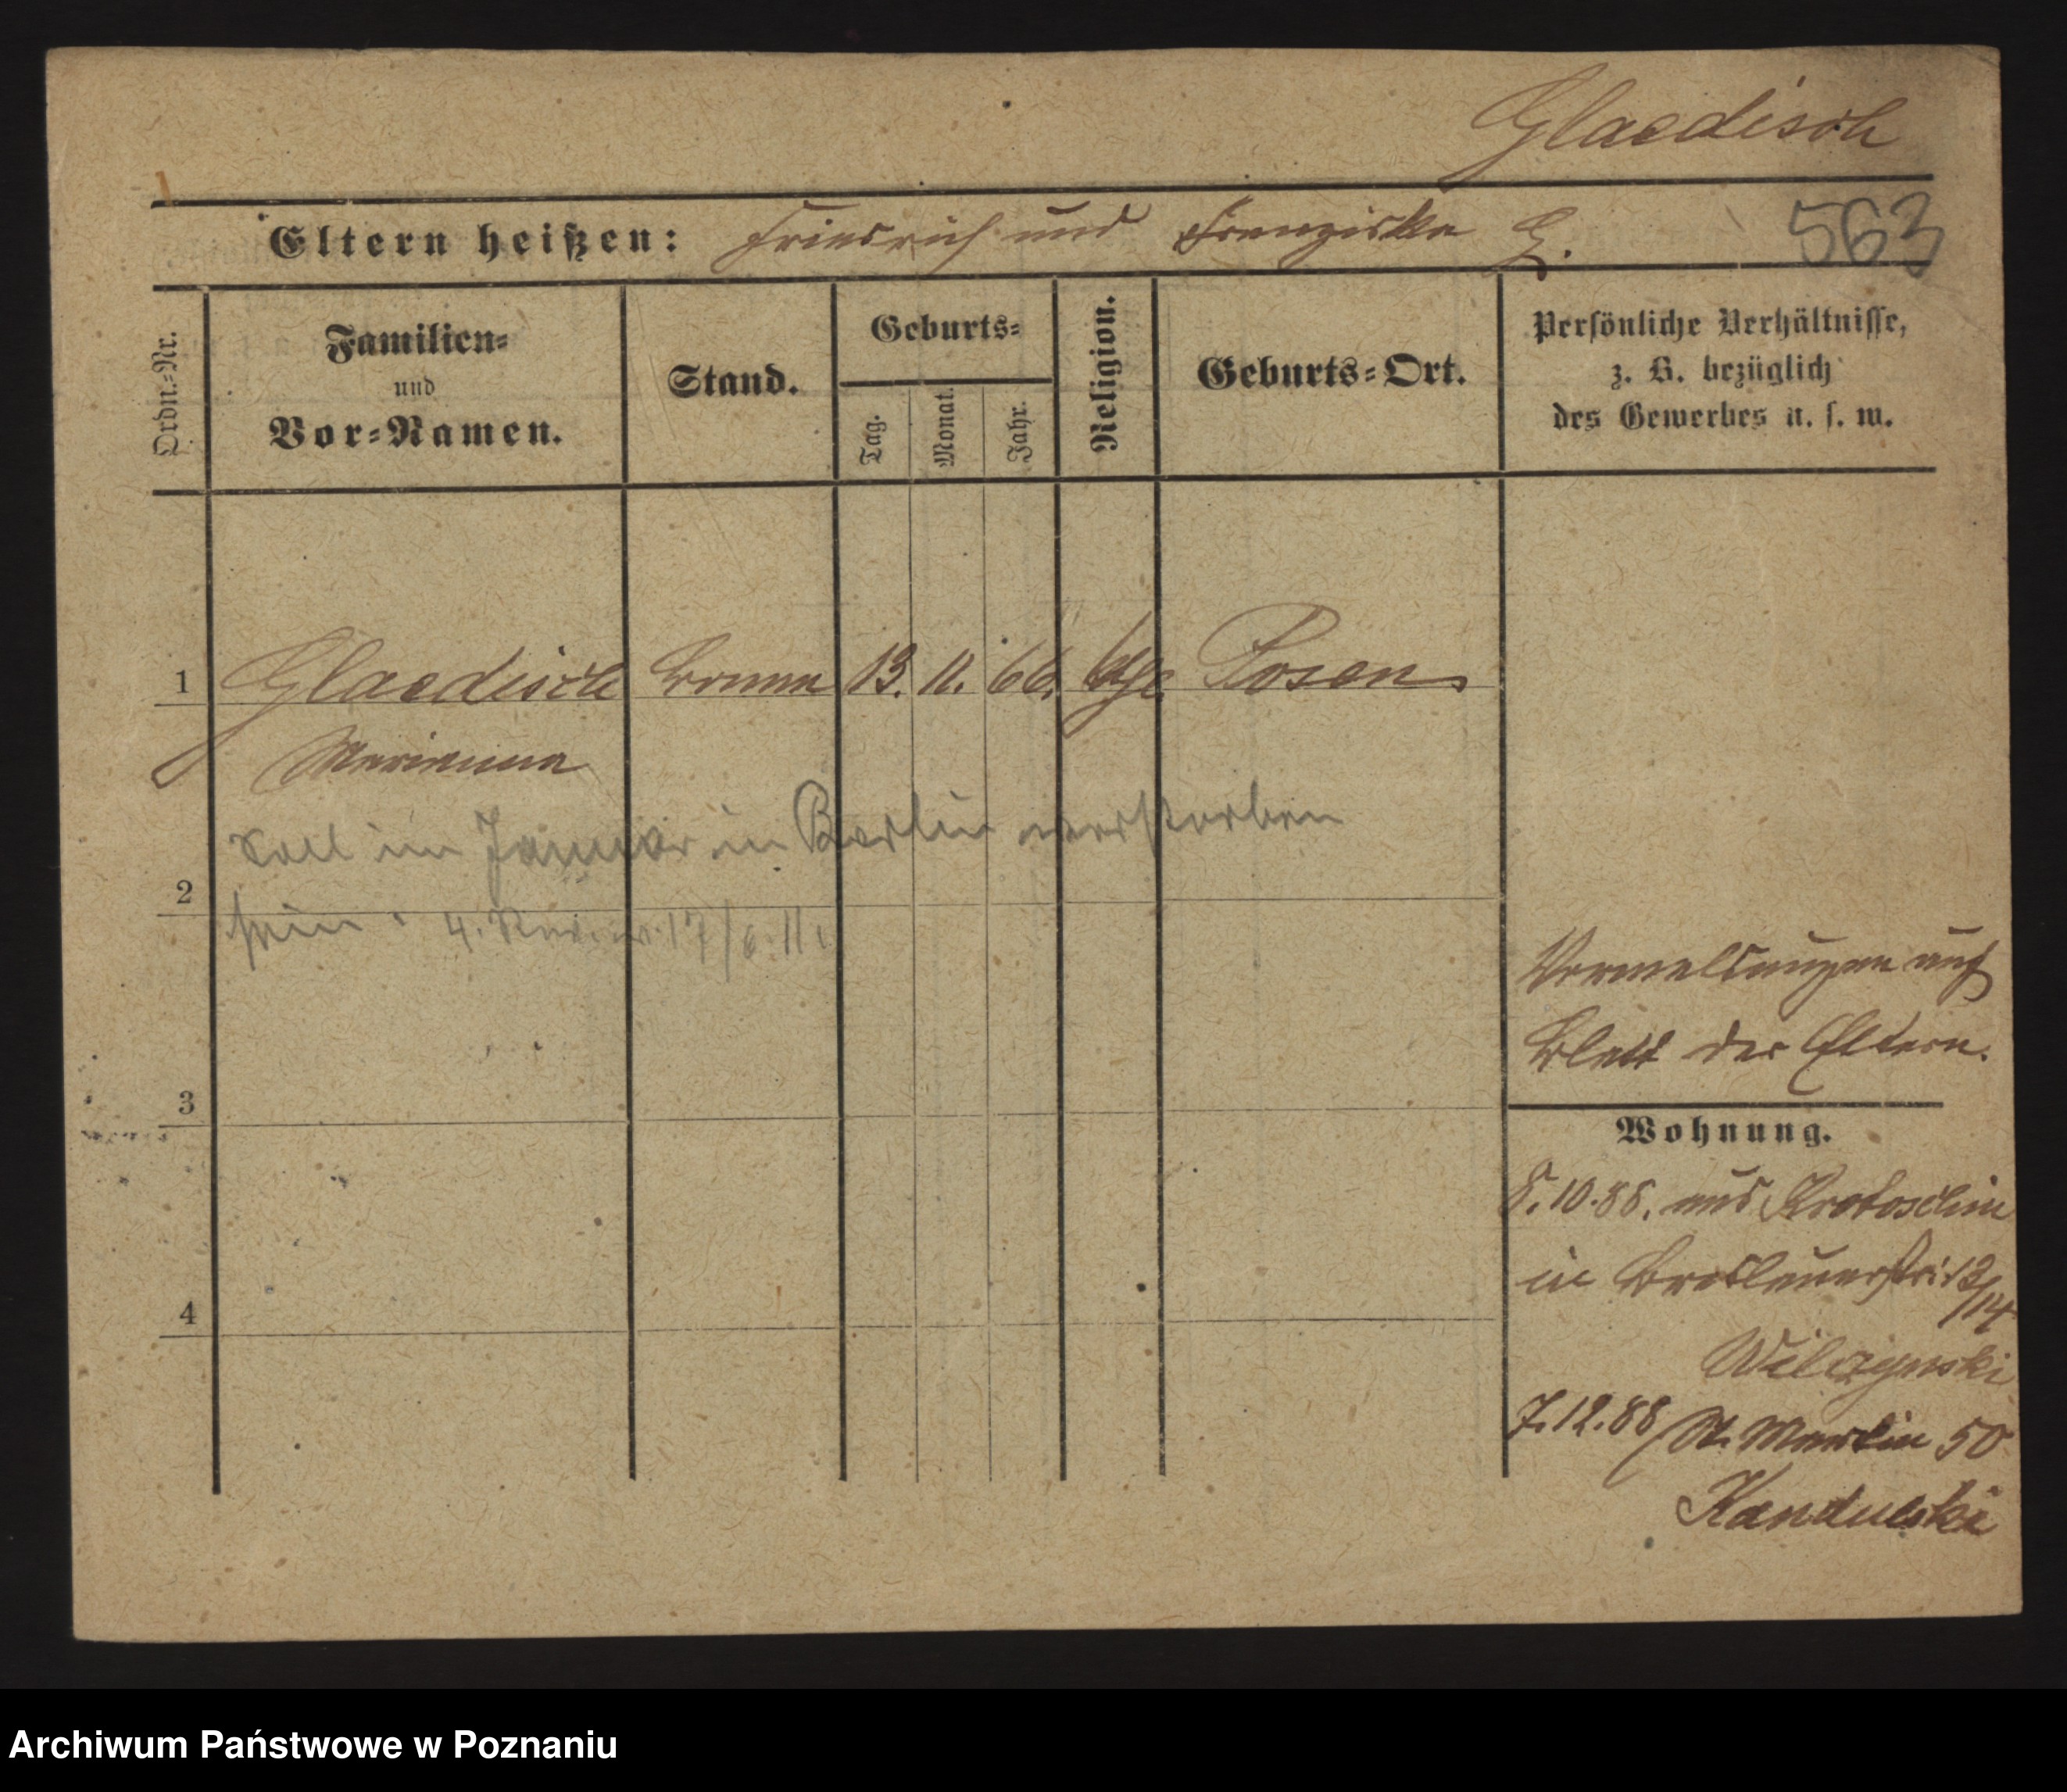 Glaedisch
Eltern heißen: Friedrich und Franziska G.
563
Ordn.-Nr.
Familien-
und
Vor-Namen.
Stand.
Geburts-
Tag.
Monat.
Jahr.
Religion.
Geburts-Ort.
Persönliche Verhältnisse,
z. B. bezüglich
des Gewerbes u. s. w.
1
Glaedisch 13. 11. 66. Posen
Marianna
soll im Januar in Berlin verstorben
2
sein. 4. Rev. 17/6. 11.
Vermeldungen auf
Blatt der Eltern.
3
Wohnung.
8.10.88. aus Krotoschin
in Breslauerstr. 13/14
4
Wilczynski
7.12.88 St. Martin 50
Kandulski
Archiwum Państwowe w Poznaniu